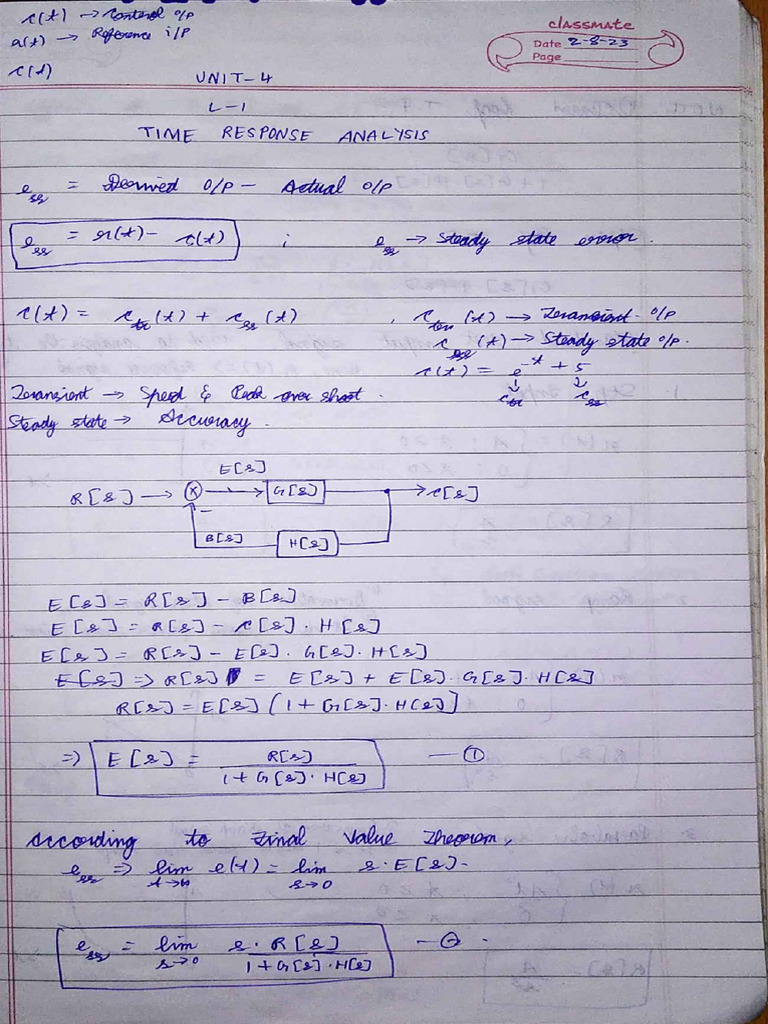 c(t) → Control o/p
r(t) → Reference i/p
c(t)
classmate
Date 2-8-23
Page
UNIT-4
L-1
TIME RESPONSE ANALYSIS
e_ss = Desired O/P - Actual O/P
e_ss = r(t) - c(t) ; e_ss → Steady state error.
c(t) = c_tr(t) + c_ss(t) , c_tr(t) → Transient O/P
c_ss(t) → Steady state O/P.
c(t) = e^-t + 5
c_tr c_ss
Transient → Speed & Peak over shoot.
Steady state → Accuracy.
E[s]
R[s] → ⊗ → G[s] → C[s]
-
B[s] H[s]
E[s] = R[s] - B[s]
E[s] = R[s] - C[s] · H[s]
E[s] = R[s] - E[s] · G[s] · H[s]
E[s] ⇒ R[s] = E[s] + E[s] · G[s] · H[s]
R[s] = E[s] (1 + G[s] · H[s]]
⇒ E[s] = R[s] / 1 + G[s] · H[s] — ①
According to Final Value Theorem,
e_ss ⇒ lim t→∞ e(t) = lim s→0 s · E[s].
e_ss = lim s→0 s · R[s] / 1 + G[s] · H[s] — ② .